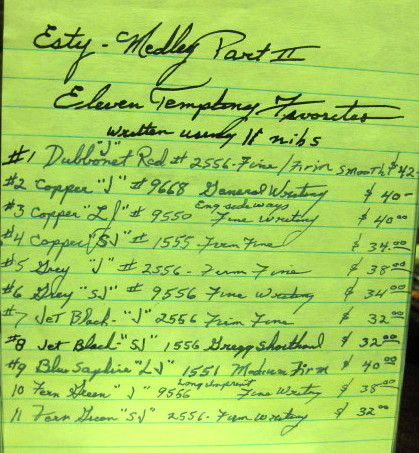 Esty - Medley Part II
Eleven Tempting Favorites
written using 11 nibs
#1 "J" Dubbonet Red # 2556 - Fine / Firm smooth $42-
#2 Copper "J" # 9668 General Writing $40-
#3 Copper "LJ" # 9550 Eng side ways Fine Writing $40.00
#4 Copper "SJ" # 1555 - Firm Fine $34.00
#5 Grey "J" # 2556 - Firm Fine $38.00
#6 Grey "SJ" # 9556 Fine Writing $34.00
#7 Jet Black - "J" 2556 Firm Fine $32.00
#8 Jet Black - "SJ" 1556 Gregg Shorthand $32.00
#9 Blue Saphire "LJ" 1551 Medium Firm $40.00
10 Fern Green "J" 9556 Long imprint Fine Writing $38.00
11 Fern Green "SJ" 2556 - Firm Writing $32.00